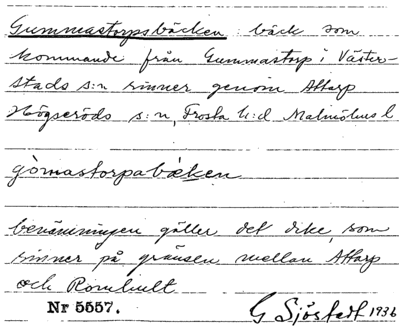 Gummastorpsbäcken bäck som
kommande från Gummastorp i Väster-
stads s:n rinner genom Attarp
Högseröds s:n, Frosta h:d Malmöhus l
gömastorpabäcken
benämningen gäller det dike, som
rinner på gränsen mellan Attarp
och Romhult
Nr 5557. G Sjöstedt 1936